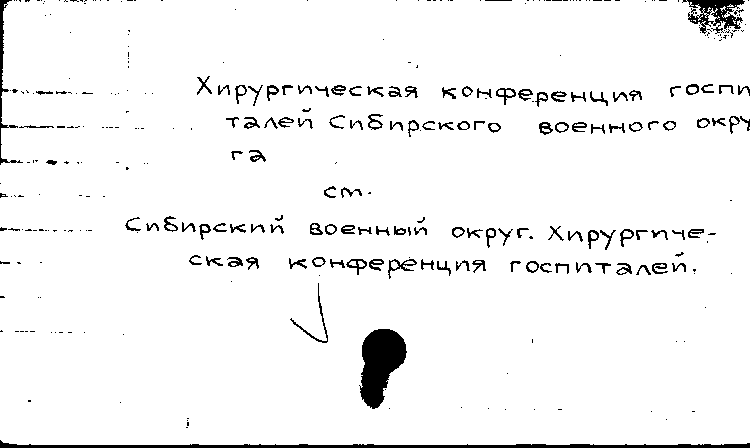 Хирургическая конференция госпи
талей Сибирского военного окру
га
см.
Сибирский военный округ. Хирургиче-
ская конференция госпиталей.